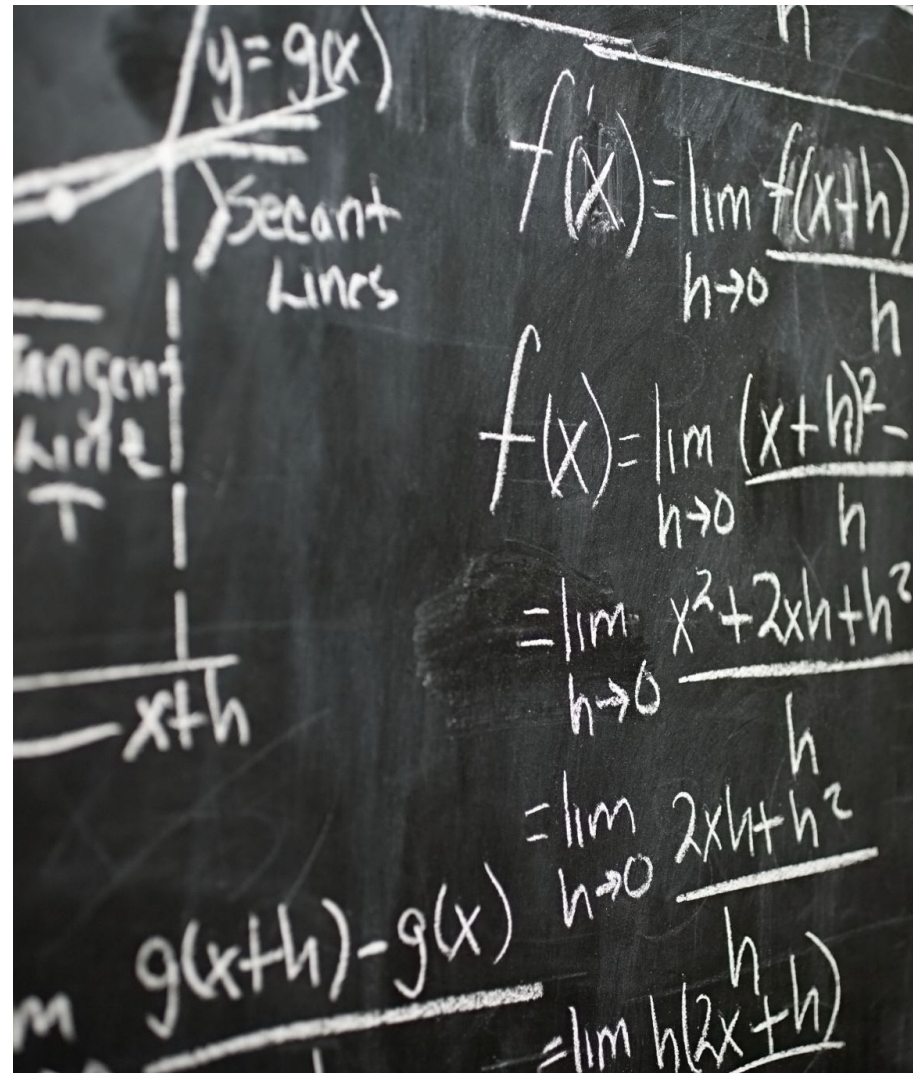 y = g(x)
Secant
Lines
Tangent
Line
T
x+h
g(x+h) - g(x)
h
f'(x) = lim f(x+h)
h→0 h
f(x) = lim (x+h)² -
h→0 h
= lim x² + 2xh + h²
h→0 h
= lim 2xh + h²
h→0 h
= lim h(2x + h)